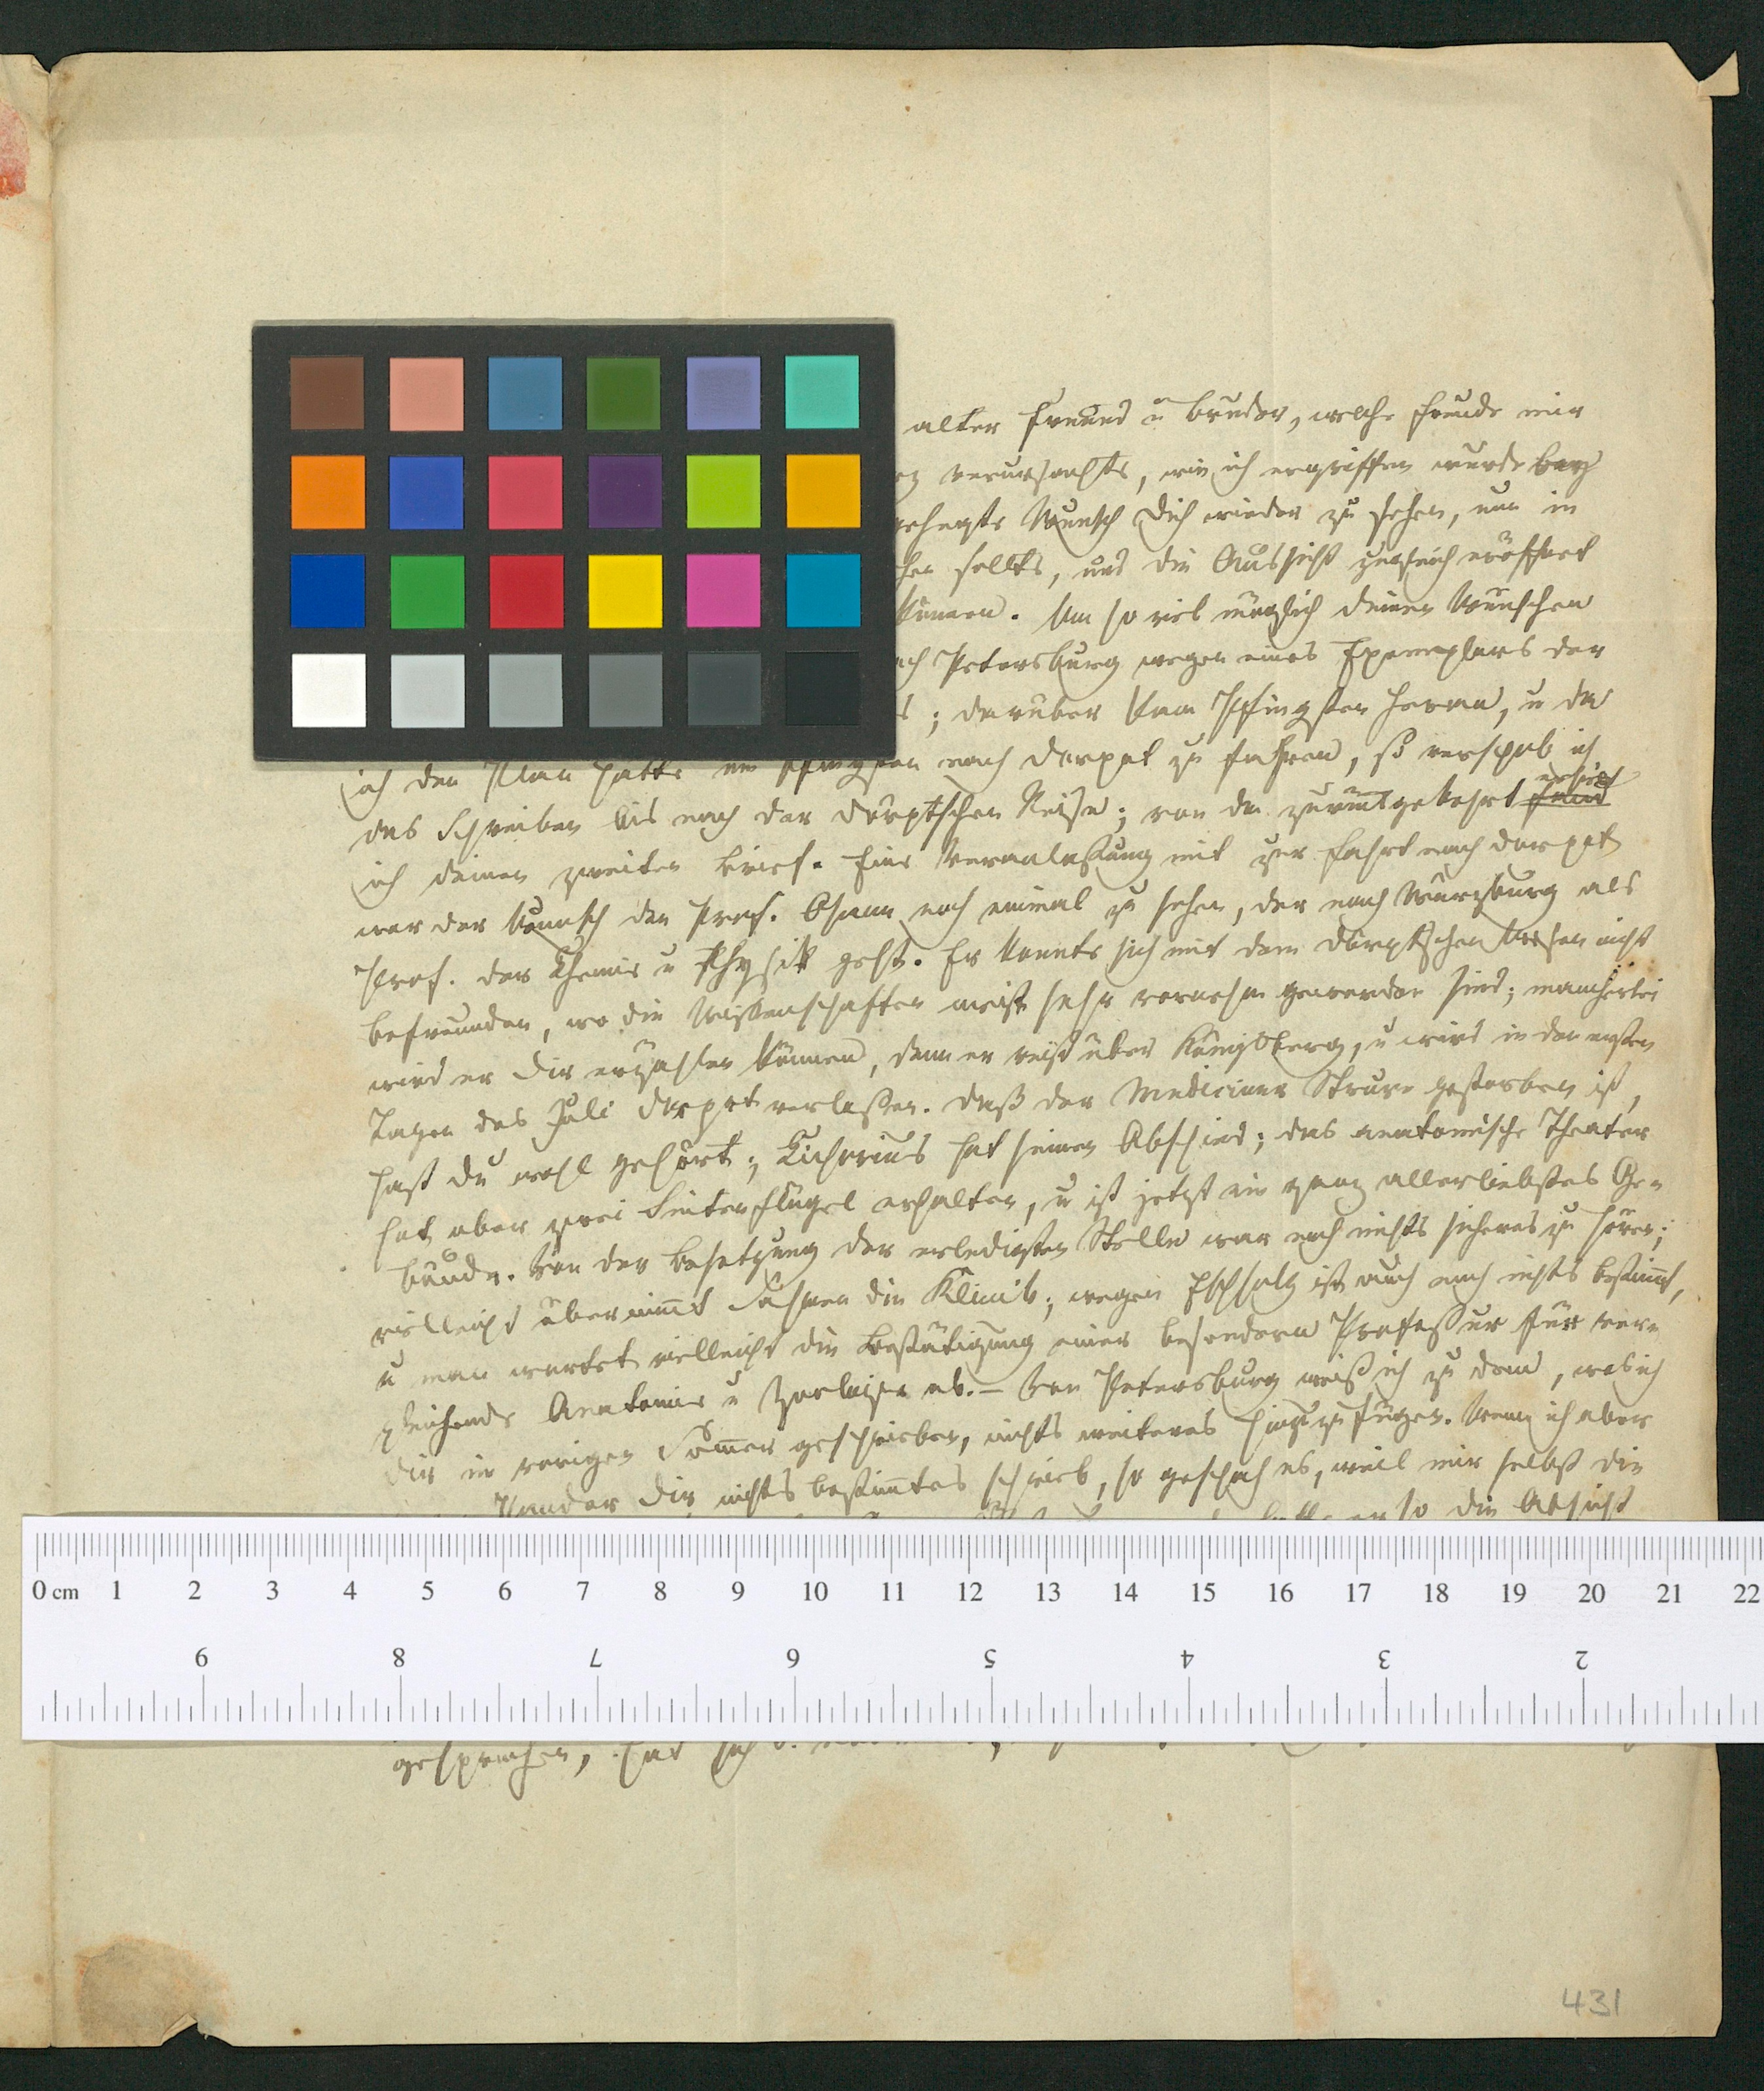 alter Freund u Bruder, welche Freude mir
verursachte, wie ich ergriffen wurde bey
gehegte Wunsch Dich wieder zu sehen, nun in
sollte, und die Aussicht zugleich eröffnet
können. Um so viel möglich deinen Wünschen
Petersburg wegen eines Exemplars der
; darüber kam Pfingsten heran, u da
ich den Plan hatte um Pfingsten nach Dorpat zu fahren, so verschob ich
das Schreiben bis nach der Dörptschen Reise; von da zurückgekehrt fand erhielt
ich deinen zweiten Brief. Eine Veranlaßung mit zur Fahrt nach Dorpat
war der Wunsch den Prof. Osann noch einmal zu sehen, der nach Würzburg als
Prof. der Chemie u Physik geht. Er konnte sich mit dem Dörptschen Wesen nicht
befreunden, wo die Wissenschaften meist sehr vornehm geworden sind; mancherlei
wird er Dir erzählen können, denn er reist über Königsberg, u wird in den ersten
Tagen des Juli Dorpat verlaßen. Daß der Mediciner Struve gestorben ist,
hast Du wohl gehört; Cichorius hat seinen Abschied; das anatomische Theater
hat aber zwei Seitenflügel erhalten, u ist jetzt ein ganz allerliebstes Ge-
bäude. Von der Besetzung der erledigten Stelle war noch nichts sicheres zu hören;
vielleicht übernimmt Sahmen die Klinik; wegen Eschholz ist auch noch nichts bestimmt,
u man wartet vielleicht die Bestätigung einer besondern Profeßur für ver-
gleichende Anatomie u Zoologie ab. – Von Petersburg weiß ich zu dem, was ich
Dir im vorigen Sommer geschrieben, nichts weiteres hinzuzufügen. Wenn ich aber
Pander Dir nichts bestimmtes schrieb, so geschah es, weil mir selbst die
hatte er so die Absicht
0 cm 1 2 3 4 5 6 7 8 9 10 11 12 13 14 15 16 17 18 19 20 21 22
9 8 7 6 5 4 3 2
gesprochen, hat sich
431